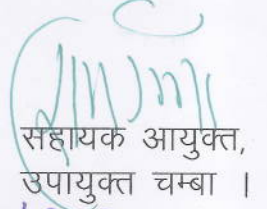 सहायक आयुक्त,
उपायुक्त चम्बा ।